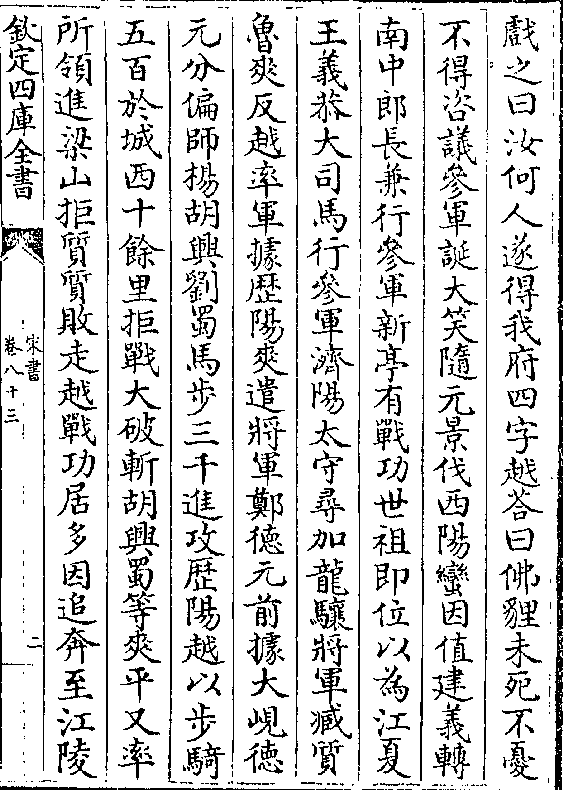 戲之曰汝何人遂得我府四字越荅曰佛貍未死不憂
不得咨議參軍誕大笑隨元景伐西陽蠻因值建義轉
南中郎長兼行參軍新亭有戰功世祖即位以為江夏
王義恭大司馬行參軍濟陽太守尋加龍驤將軍臧質
魯爽反越率軍據歴陽爽遣將軍鄭德元前據大峴德
元分偏師楊胡興劉蜀馬步三千進攻歴陽越以步騎
五百於城西十餘里拒戰大破斬胡興蜀等爽平又率
所領進梁山拒質質敗走越戰功居多因追奔至江陵
欽定四庫全書
宋書
卷八十三
二